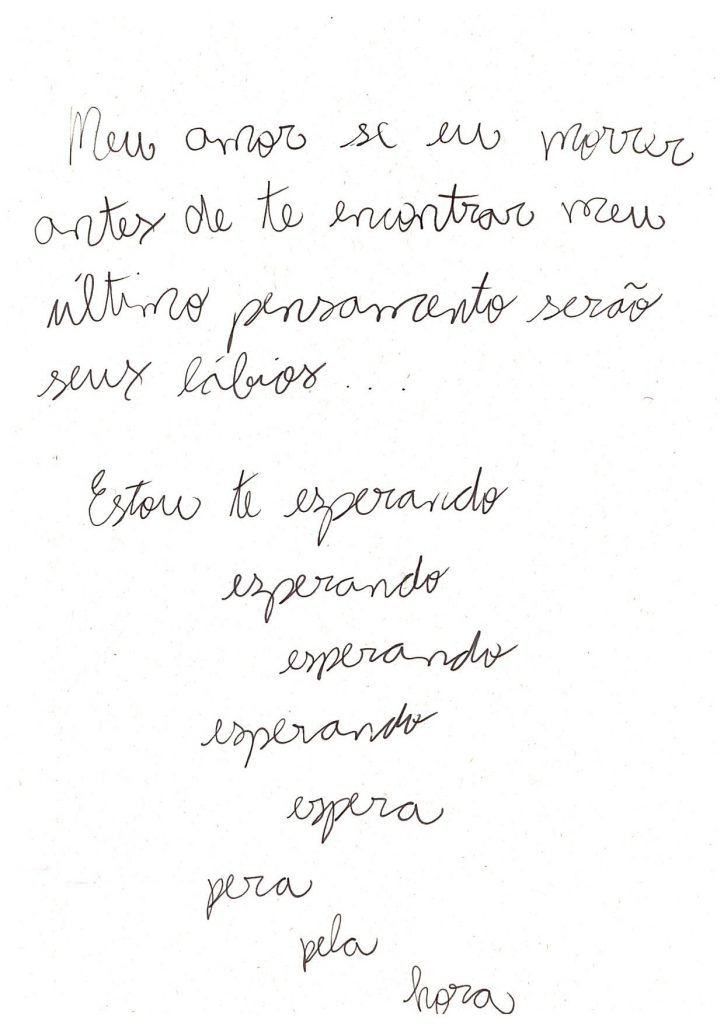 Meu amor se eu morrer
antes de te encontrar meu
último pensamento serão
seus lábios...
Estou te esperando
esperando
esperando
esperando
espera
pera
pela
hora